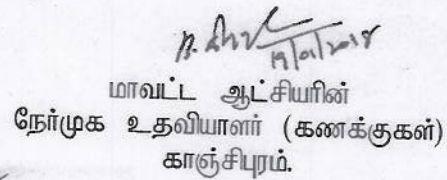 19/01/2018
மாவட்ட ஆட்சியரின்
நேர்முக உதவியாளர் (கணக்குகள்)
காஞ்சிபுரம்.